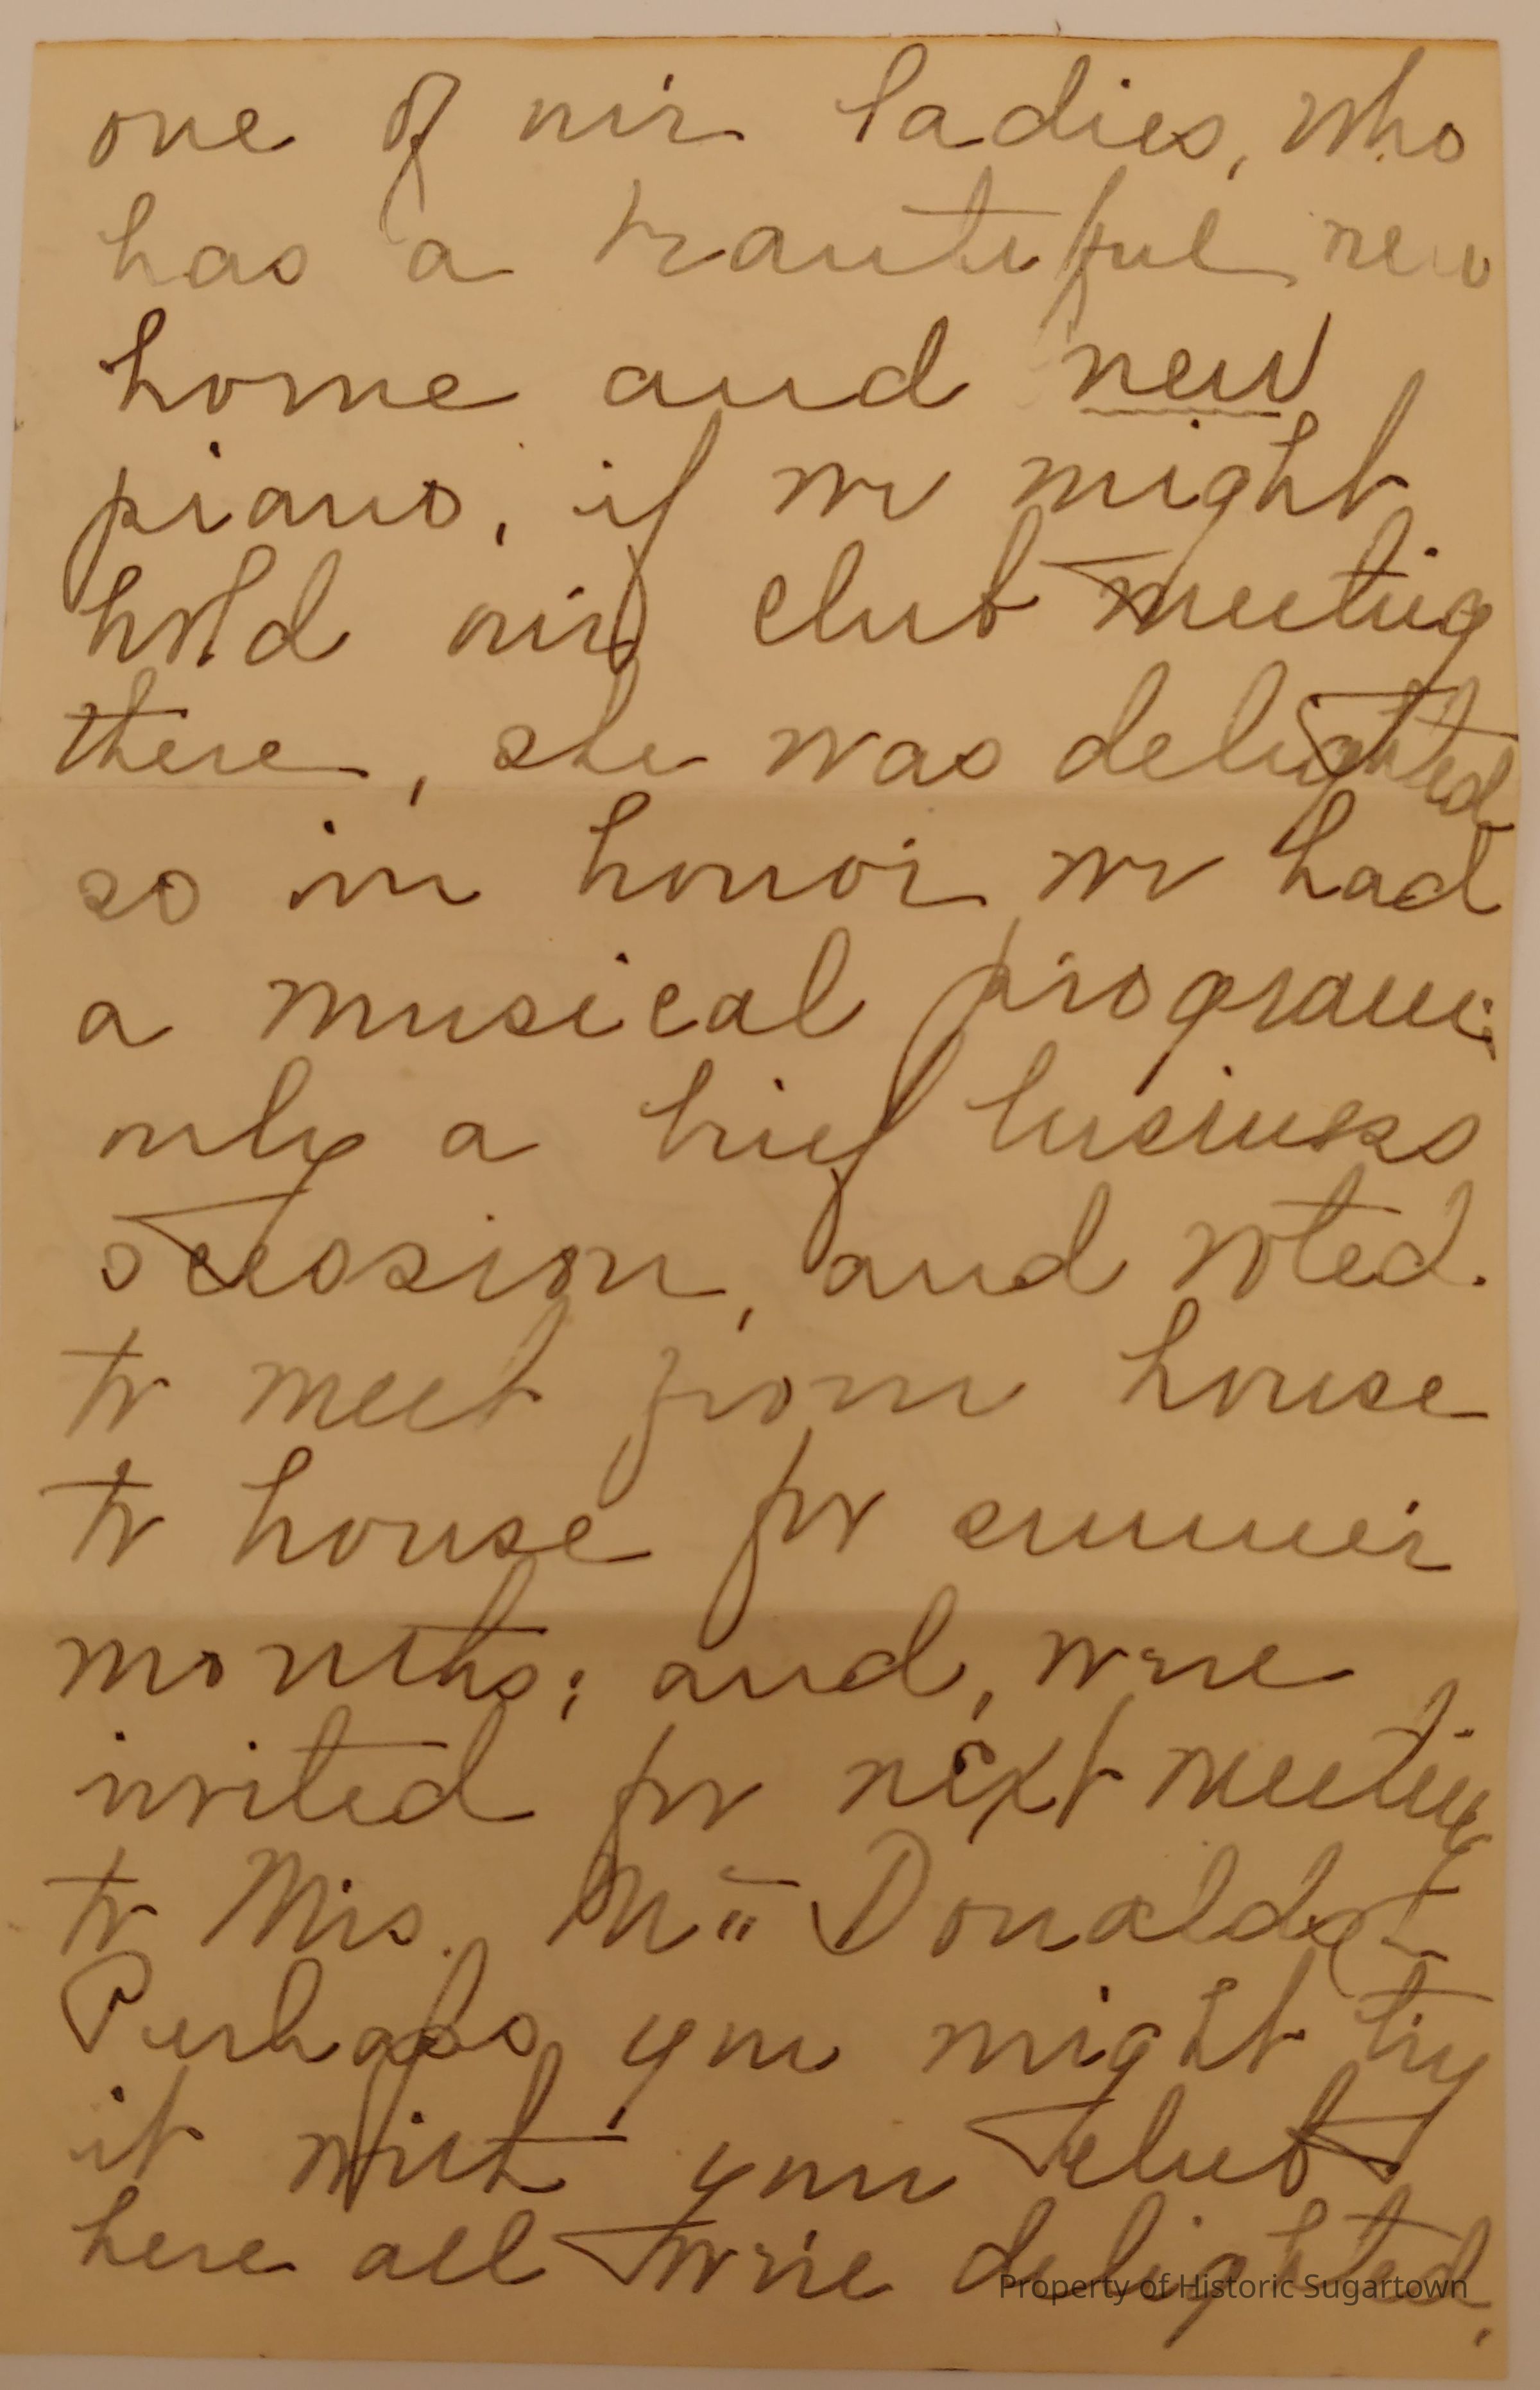 one of our ladies, who
has a beautiful new
home and new
piano, if we might
hold our club meeting
there, she was delighted
so in honor we had
a musical program;
only a brief business
session, and voted
to meet from house
to house for summer
months; and, were
invited for next meeting
to Mrs. Mc Donalds
Perhaps you might try
it with your club
here all were delighted.
Property of Historic Sugartown